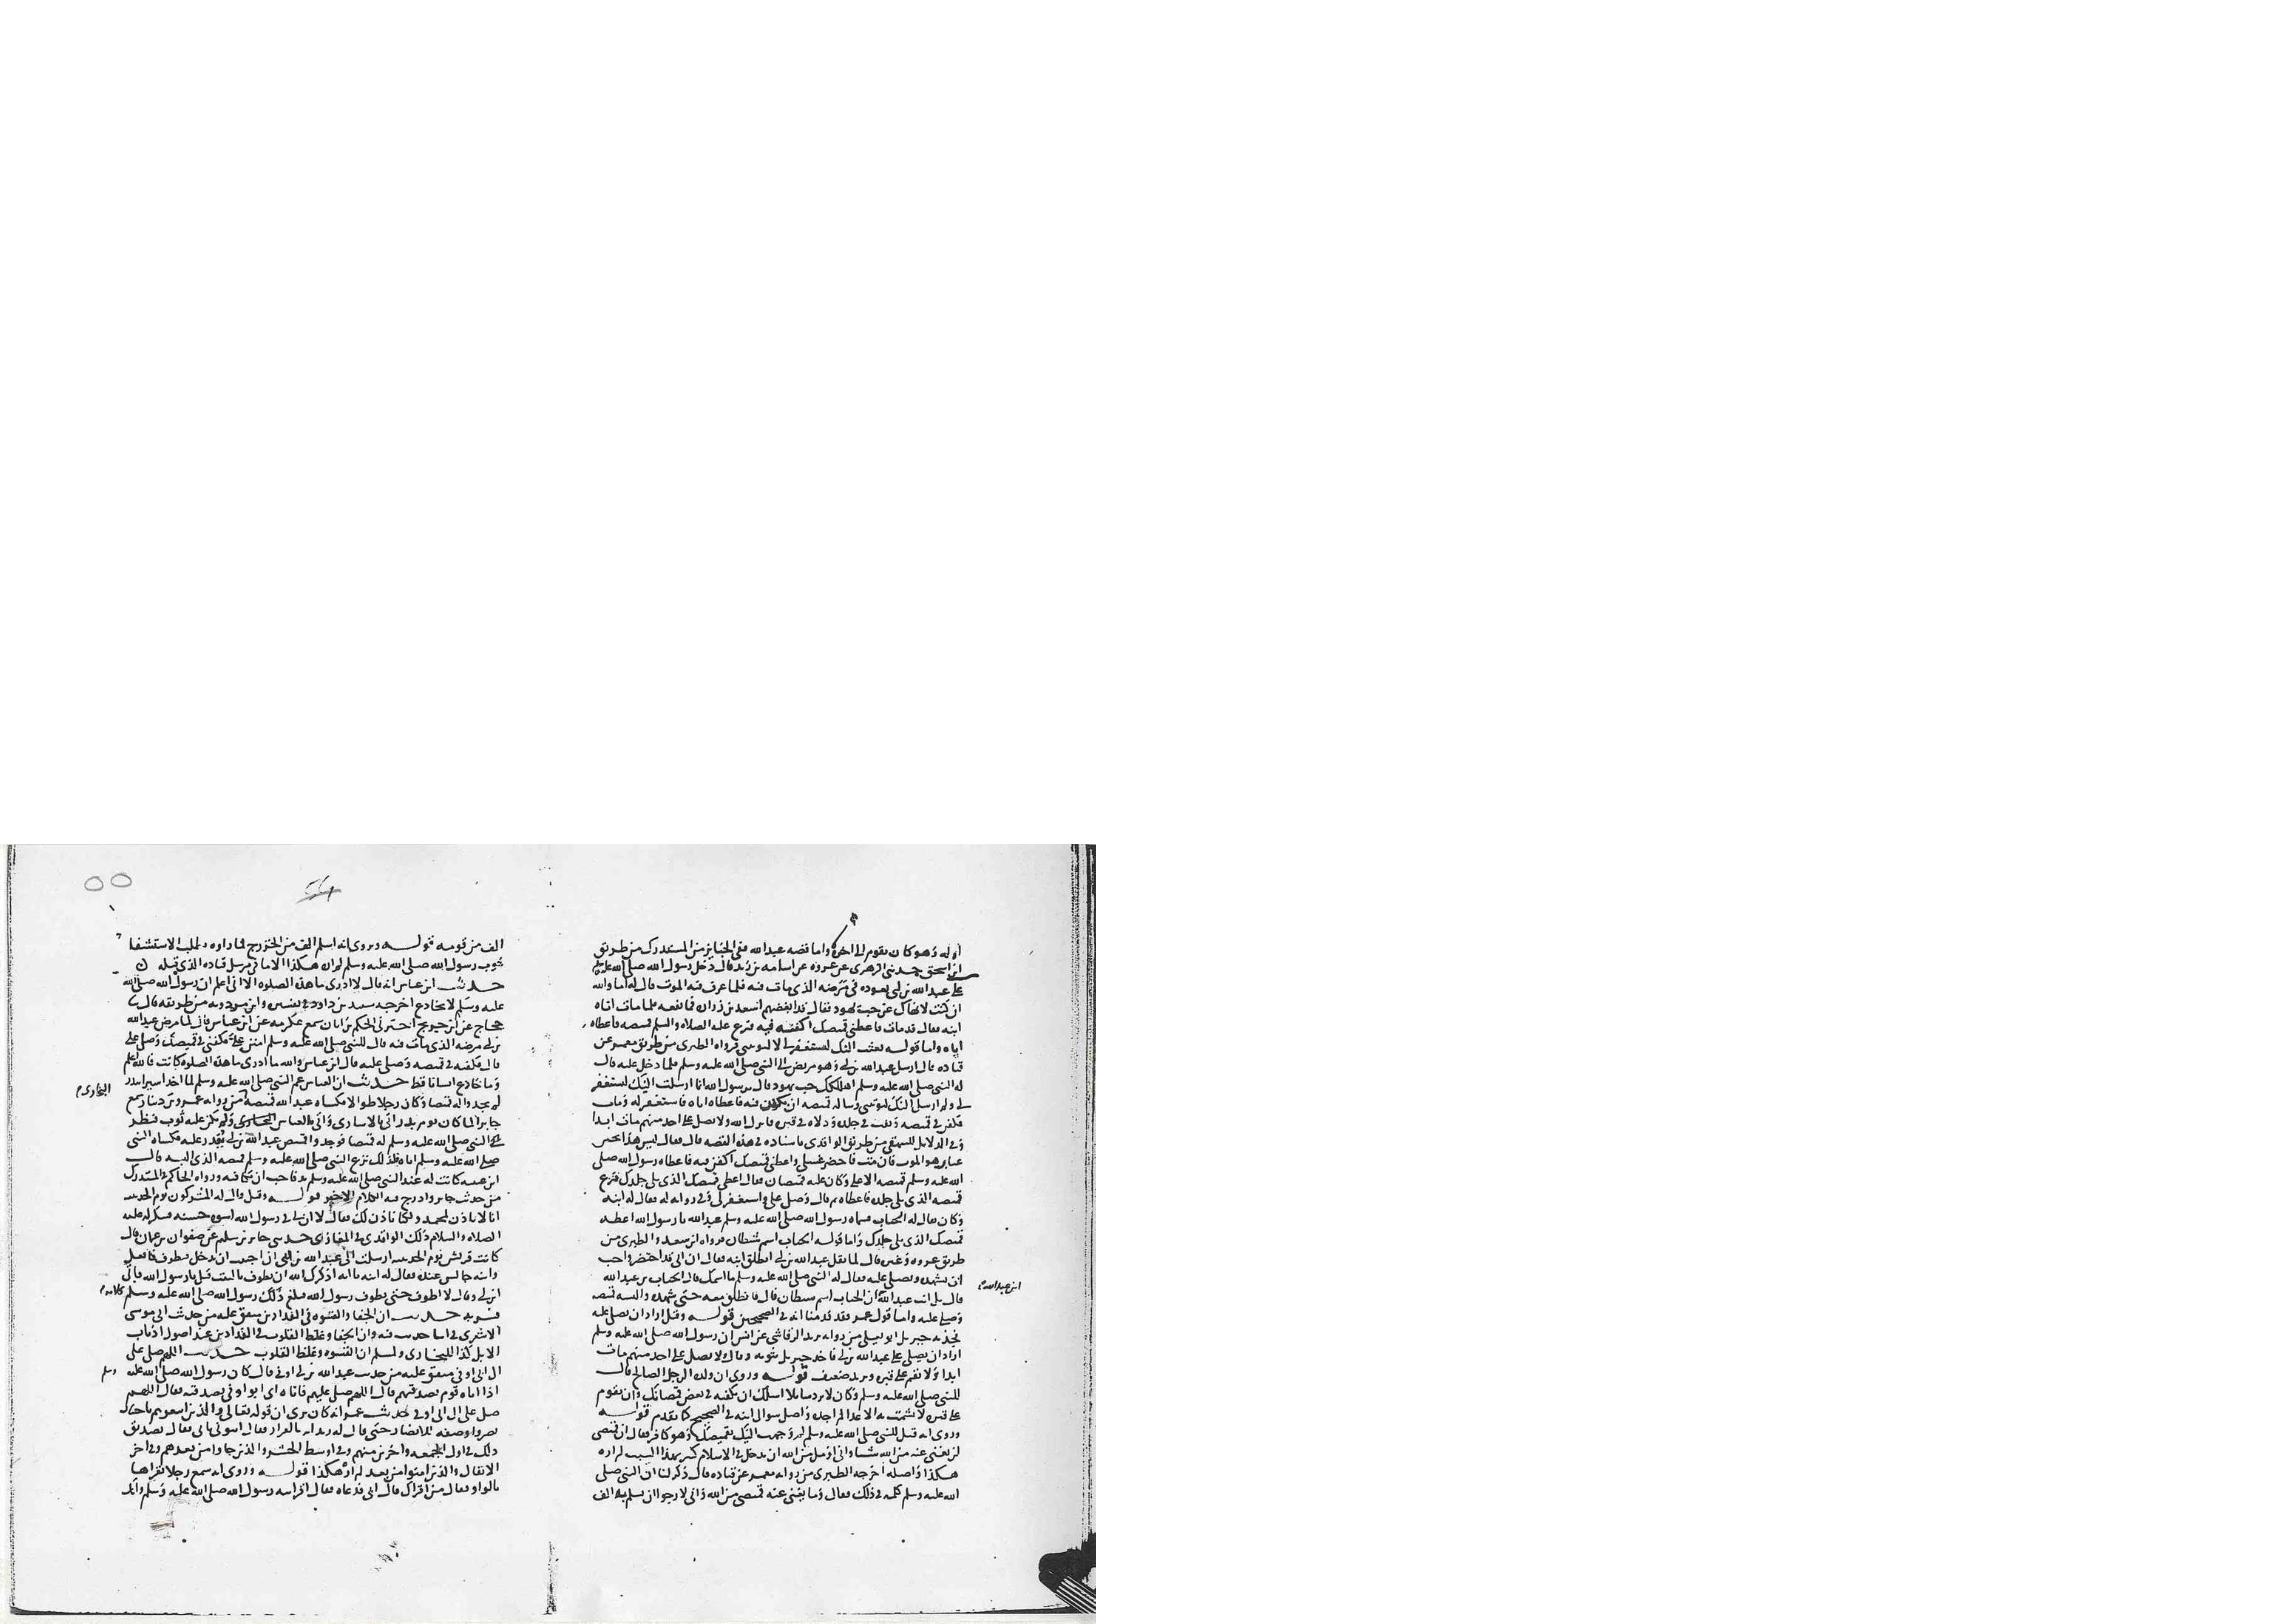 اوله وهو كان يقوم الى اخره واما قصه عبدالله ففي الجنايز من المستدرك من طريق
ابن اسحق حدثني الزهري عن عروه عن اسامه بن زيد قال دخل رسول الله صلى الله عليه
على عبدالله بن ابي يعوده في مرضه الذي مات فيه فلما عرف فيه الموت قال له اما والله
ان كنت لانهاك عن حب يهود فقال قد ابغضهم اسعد بن زراره فما نفعه فلما مات اتاه
ابنه فقال قد مات فاعطني قميصك اكفنه فيه فنزع عليه الصلاه والسلم قميصه فاعطاه
اياه واما قوله بعثت اليك لتستغفر لي لا لتوبخني فرواه الطبري من طريق معمر عن
قتاده قال ارسل عبدالله بن ابي وهو مريض الى النبي صلى الله عليه وسلم فلما دخل عليه قال
له النبي صلى الله عليه وسلم اهلكك حب يهود قال يرسول الله انما ارسلت اليك لتستغفر
لي ولم ارسل اليك لتوبخني وساله قميصه ان يكفن فيه فاعطاه اياه فاستغفر له ومات
فكفن في قميصه ونفث في جلده ودلاه في قبره فانزل الله ولا تصل على احد منهم مات ابدا
وفي الدلايل للبيهقي من طريق الواقدي باسناده في هذه القصه قال فقال ليس هذا بحين
عتاب هو الموت فان مت فاحضر غسلي واعطني قميصك اكفن فيه فاعطاه رسول الله صلى
الله عليه وسلم قميصه الاعلى وكان عليه قميصان فقال اعطني قميصك الذي يلي جلدك فنزع
قميصه الذي يلي جلده فاعطاه ثم قال وصل علي واستغفر لي وفي روايه له فقال له ابنه
وكان يقال له الحباب فسماه رسول الله صلى الله عليه وسلم عبدالله يا رسول الله اعطه
قميصك الذي يلي جلدك واما قوله الحباب اسم شيطان فرواه ابن سعد والطبري من
طريق عروه وغيره قال لما ثقل عبدالله بن ابي انطلق ابنه فقال ان ابي قد احتضر واحب
ان تشهده وتصلي عليه فقال له النبي صلى الله عليه وسلم ما اسمك قال الحباب بن عبدالله
ابن عبدالله
قال بل انت عبدالله ان الحباب اسم شيطان قال فانطلق معه حتى شهده والبسه قميصه
وصلى عليه واما قول عمر فقد قدمنا انه في الصحيحين قوله وقيل اراد ان يصلي عليه
فجذبه جبريل ابو يعلى من روايه يزيد الرقاشي عن انس ان رسول الله صلى الله عليه وسلم
اراد ان يصلي على عبدالله بن ابي فاخذ جبريل بثوبه وقال ولا تصل على احد منهم مات
ابدا ولا تقم على قبره ويزيد ضعيف قوله وروي ان ولده الرجل الصالح قال
للنبي صلى الله عليه وسلم وكان لا يرد سايلا اسلك ان تكفنه في بعض قمصانك وان تقوم
على قبره لا يشمت به الاعدا لم اجده واصل سوال ابنه في الصحيح كما تقدم قوله
وروي انه قيل للنبي صلى الله عليه وسلم لم وجهت اليك بقميصك وهو كافر فقال ان قميصي
لن يغني عنه من الله شيا واني اومل من الله ان يدخل في الاسلام كثير بهذا السبب لم اره
هكذا واصله اخرجه الطبري من روايه معمر عن قتاده قال ذكر لنا ان النبي صلى
الله عليه وسلم كلم في ذلك فقال وما يغني عنه قميصي من الله واني لارجو ان يسلم به الف
الف من قومه قوله ويروى انه اسلم الف من الخزرج لما راوه طلب الاستشفا
بثوب رسول الله صلى الله عليه وسلم لم اره هكذا الا ما في مرسل قتاده الذي قبله
حديث ابن عباس انه قال لا ادري ما هذه الصلوه الا اني اعلم ان رسول الله صلى الله
عليه وسلم لا يخادع اخرجه سنيد بن داود في تفسيره وابن مردويه من طريقه قال ثنا
حجاج عن ابن جريج اخبرني الحكم بن ابان سمع عكرمه عن ابن عباس قال لما مرض عبدالله
بن ابي مرضه الذي مات فيه قال للنبي صلى الله عليه وسلم امنن علي فكفني في قميصك وصل علي
قال فكفنه في قميصه وصلى عليه قال ابن عباس والله ما ادري ما هذه الصلوه كانت فالله اعلم
وما خادع انسانا قط حديث ان العباس عم النبي صلى الله عليه وسلم لما اخذ اسيرا ببدر
لم يجدوا له قميصا وكان رجلا طوالا فكساه عبدالله قميصه من روايه عمرو بن دينار سمع
البخاري
جابرا لما كان يوم بدر اتي بالاسارى واتي بالعباس ولم يكن عليه ثوب فنظر
النبي صلى الله عليه وسلم له قميصا فوجدوا قميص عبدالله بن ابي يقدر عليه فكساه النبي
صلى الله عليه وسلم اياه فلذلك نزع النبي صلى الله عليه وسلم قميصه الذي البسه قال
ابن عيينه كانت له عند النبي صلى الله عليه وسلم يد فاحب ان يكافيه ورواه الحاكم في المستدرك
من حديث جابر وادرج فيه الكلام الاخير قوله وقيل قال له المشركون يوم الحديبيه
انا لا ناذن لمحمد ولكنا ناذن لك فقال لا ان لي في رسول الله اسوه حسنه فشكر له عليه
الصلاه والسلام ذلك الواقدي في المغازي حدثني جابر بن سليم عن صفوان بن عثمان قال
كانت قريش يوم الحديبيه ارسلت الى عبدالله بن ابي ان احببت ان تدخل فتطوف فافعل
وابنه جالس عنده فقال له ابنه يا ابه اذكرك الله ان تطوف بالبيت قبل يا رسول الله فابى
ابن ابي وقال لا اطوف حتى يطوف رسول الله فبلغ ذلك رسول الله صلى الله عليه وسلم كلامه
فسر به حديث ان الجفا والقسوه في الفدادين متفق عليه من حديث ابي موسى
الاشعري في اثنا حديث فيه وان الجفا وغلظ القلوب في الفدادين عند اصول اذناب
الابل كذا للبخاري ولمسلم ان القسوه وغلظ القلوب حديث اللهم صل على
ال ابي اوفى متفق عليه من حديث عبدالله بن ابي اوفى قال كان رسول الله صلى الله عليه وسلم
اذا اتاه قوم بصدقتهم قال اللهم صل عليهم فاتاه ابي ابو اوفى بصدقته فقال اللهم
صل على ال ابي اوفى حديث عمر انه كان يرى ان قوله تعالى والذين اتبعوهم باحسان
بغير واو صفه للانصار حتى قال له زيد انه بالواو فقال ايتوني بابي فقال تصديق
ذلك في اول الجمعه واخرين منهم وفي اوسط الحشر والذين جاوا من بعدهم وفي اخر
الانفال والذين امنوا من بعد لم اره هكذا قوله وروي انه سمع رجلا يقراها
بالواو فقال من اقراك قال ابي فدعاه فقال اقرانيه رسول الله صلى الله عليه وسلم وانك